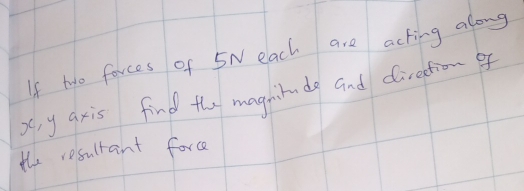 If two forces of 5N each are acting along
x, y axis find the magnitude and direction of
the resultant force